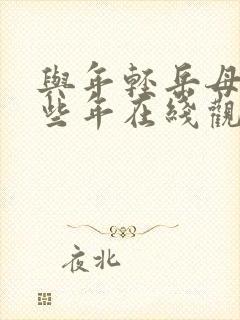 與年輕岳母
些年在綫觀
夜北